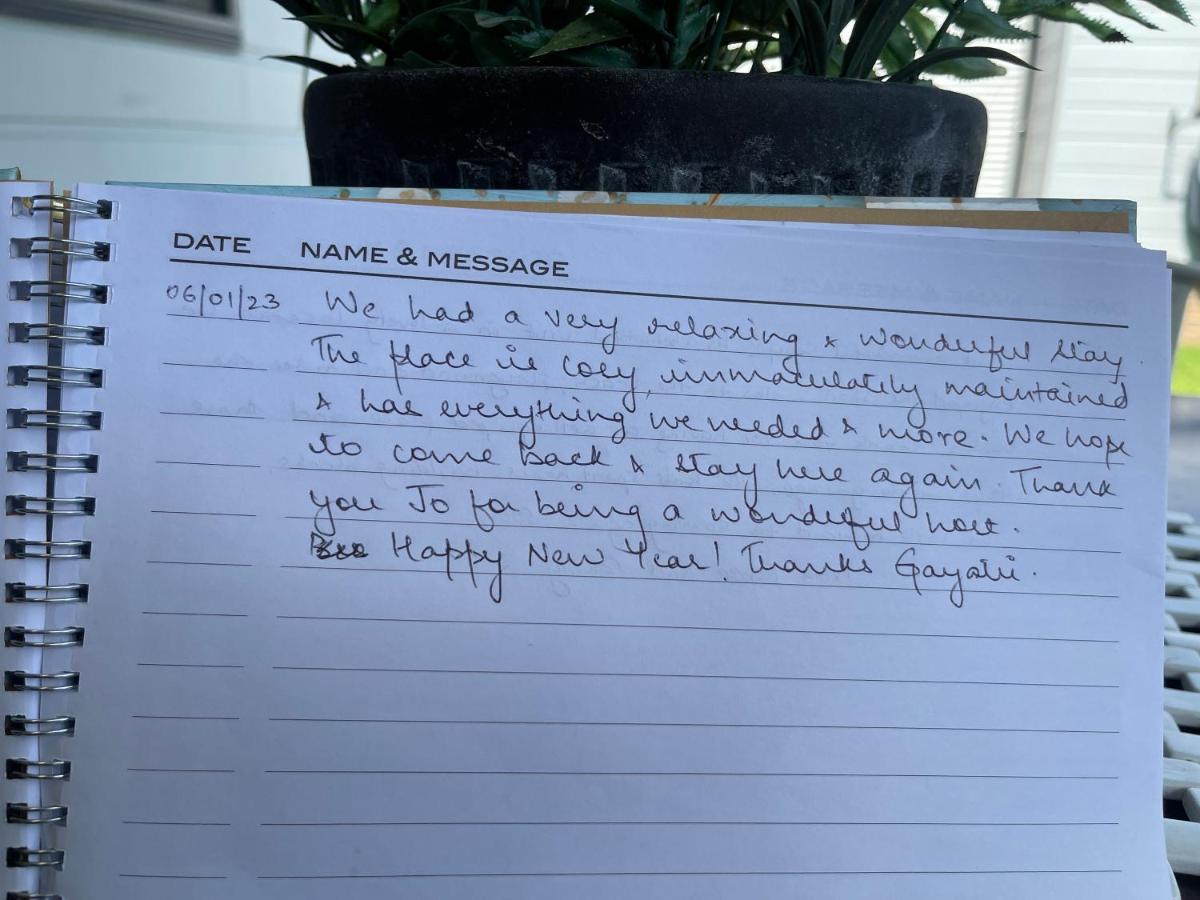 DATE NAME & MESSAGE
06/01/23 We had a very relaxing & wonderful stay.
The place is cosy, immaculately maintained
& has everything we needed & more. We hope
to come back & stay here again. Thank
you Jo for being a wonderful host.
Happy New Year! Thanks Gayatri.